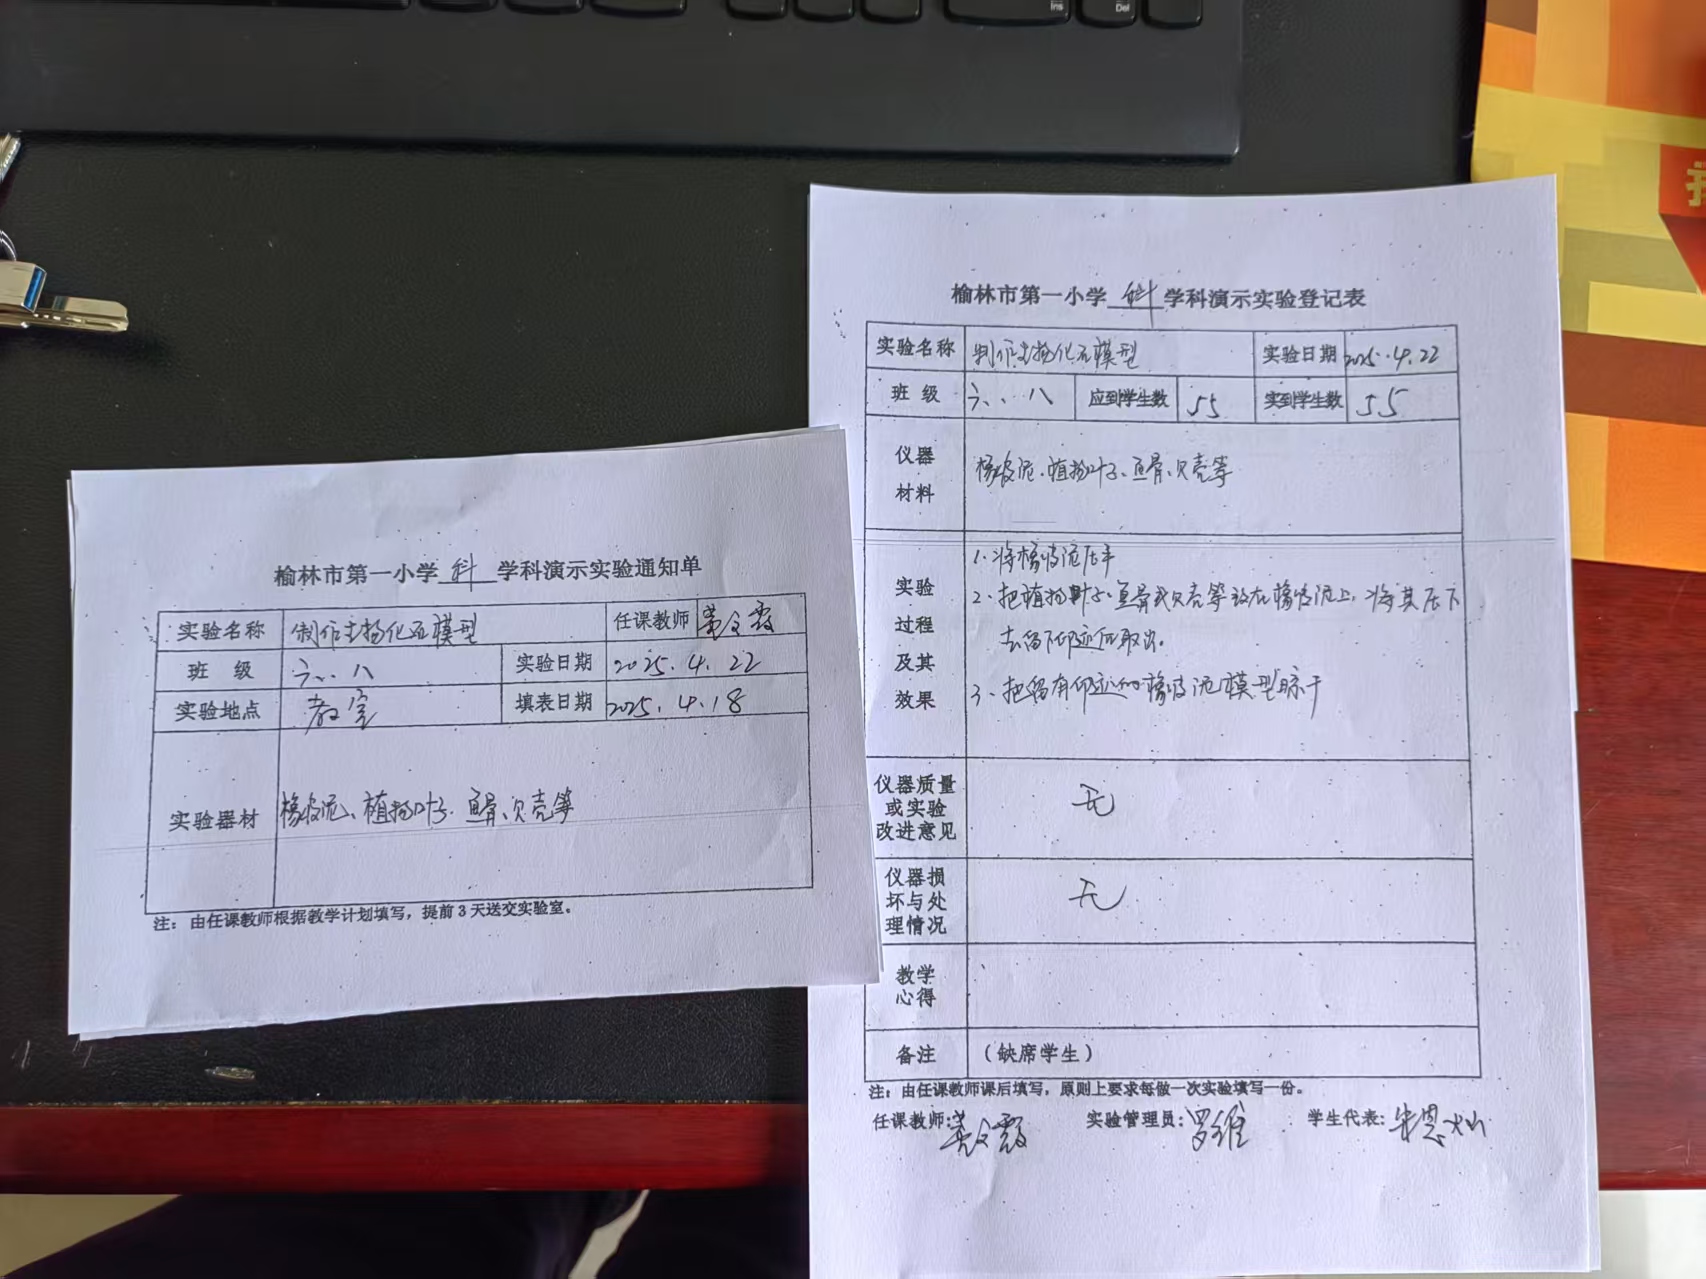 Ins
Del
榆林市第一小学 科 学科演示实验通知单
实验名称 制作生物化石模型 任课教师
班 级 六、八 实验日期 2025.4.22
实验地点 教室 填表日期 2025.4.18
实验器材 橡皮泥、植物叶子、鱼骨、贝壳等
注：由任课教师根据教学计划填写，提前3天送交实验室。
榆林市第一小学 科 学科演示实验登记表
实验名称 制作生物化石模型 实验日期 2025.4.22
班 级 六、八 应到学生数 55 实到学生数 55
仪器
材料
橡皮泥、植物叶子、鱼骨、贝壳等
实验
过程
及其
效果
1、将橡皮泥压平
2、把植物叶子、鱼骨或贝壳等放在橡皮泥上，将其压下
去留下印迹后取出。
3、把留有印迹的橡皮泥模型晾干
仪器质量
或实验
改进意见
无
仪器损
坏与处
理情况
无
教学
心得
备注 （缺席学生）
注：由任课教师课后填写，原则上要求每做一次实验填写一份。
任课教师： 实验管理员：罗维 学生代表：朱恩灿